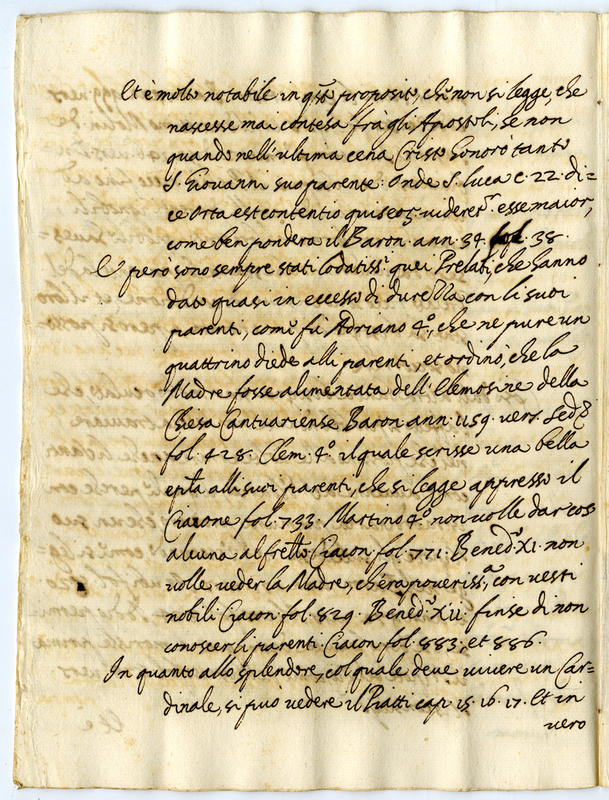 Et è molto notabile in q.sto proposito, che non si legge, che
nascesse mai contesa frà gli Apostoli, se non
quando nell'ultima cena Cristo honorò tanto
S. Giovanni suo parente: Onde S. Luca c. 22. di=
ce orta est contentio quis eor. videret.r esse maior,
come ben pondera il Baron. ann. 34. 38.
E però sono sempre stati lodatiss.i quei Prelati, che hanno
dato quasi in eccesso di durezza con li suoi
parenti, come fù Adriano 4.o, che ne pure un
quattrino diede alli parenti, et ordinò, che la
Madre fosse alimentata dell'Elemosine della
Chiesa Cantuariense Baron. ann. 1159. vers. Sed
fol. 428. Clem. 4.o il quale scrisse una bella
ep.la alli suoi parenti, che si legge appresso il
Ciacone fol. 733. Martino 4.o non volle dar cosa
alcuna al fr.ello Ciacon. fol. 771. Bened.o XI. non
volle veder la Madre, ch'era poveriss.a con vesti
nobili Ciacon. fol. 829. Bened.o XII. finse di non
conoscer li parenti. Ciacon fol. 883, et 886.
In quanto allo splendore, col quale deve vivere un Car=
dinale, si può vedere il Piatti cap. 15. 16. 17. Et in
vero